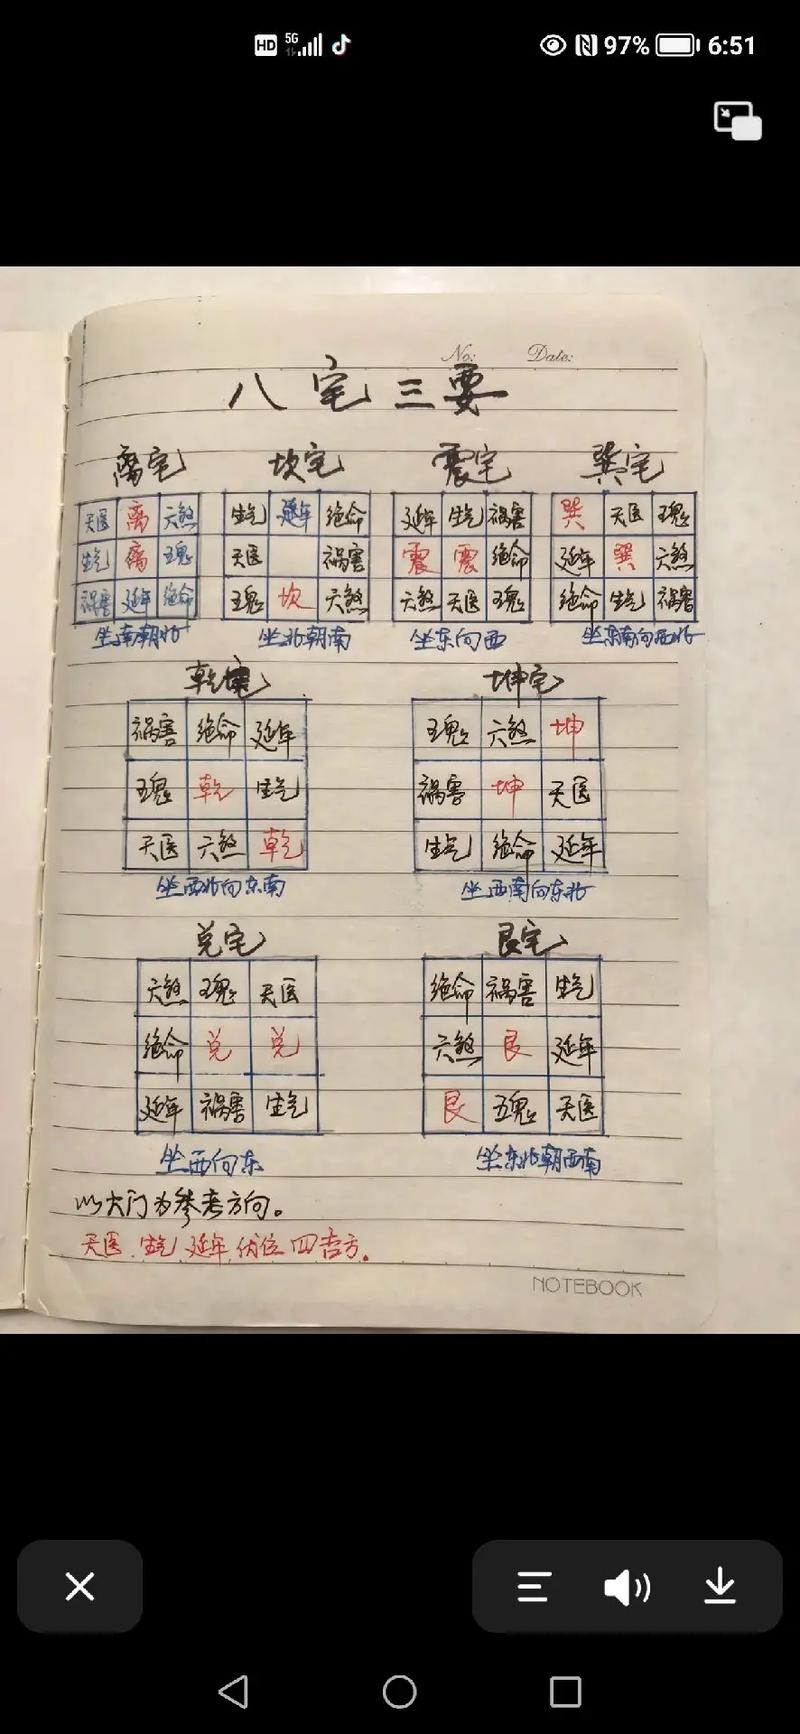 HD 5G 97% 6:51
No: Date:
八宅三要
离宅 坎宅 震宅 巽宅
天医 离 六煞 生气 延年 绝命 延年 生气 祸害 巽 天医 五鬼
生气 离 五鬼 天医 祸害 震 震 绝命 延年 巽 六煞
祸害 延年 绝命 五鬼 坎 六煞 六煞 天医 五鬼 绝命 生气 祸害
坐南朝北 坐北朝南 坐东向西 坐东南向西北
乾宅 坤宅
祸害 绝命 延年 五鬼 六煞 坤
五鬼 乾 生气 祸害 坤 天医
天医 六煞 乾 生气 绝命 延年
坐西北向东南 坐西南向东北
兑宅 艮宅
六煞 五鬼 天医 绝命 祸害 生气
绝命 兑 兑 六煞 艮 延年
延年 祸害 生气 艮 五鬼 天医
坐西向东 坐东北朝西南
以大门为参考方向。
天医、生气、延年、伏位四吉方。
NOTEBOOK